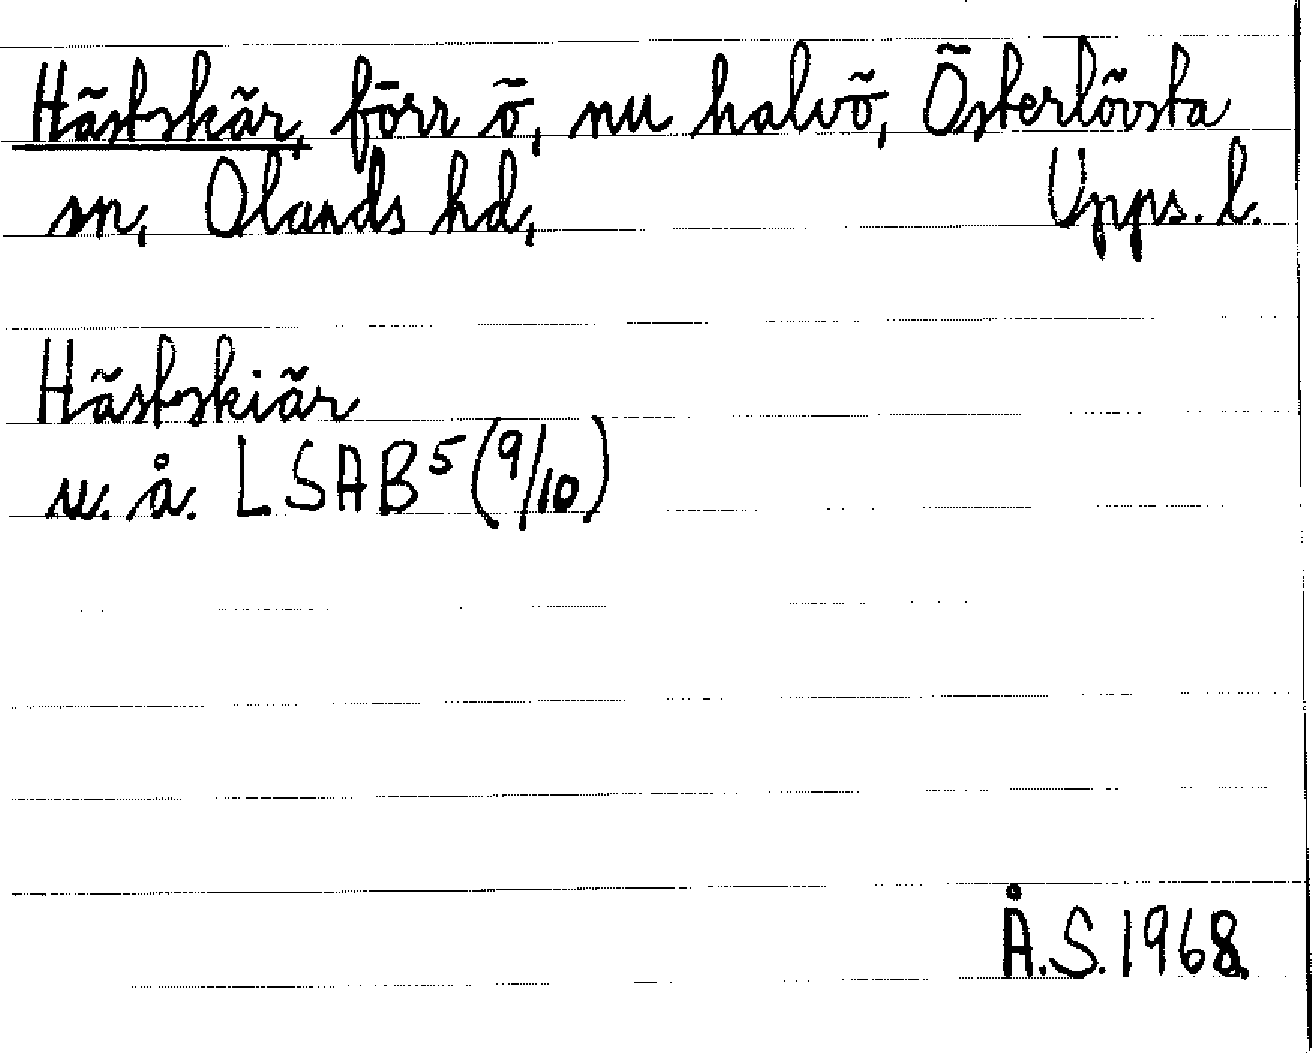 Hästskär, förr ö, nu halvö, Österlövsta
sn, Olands hd, Upps. l.
Hästskiär
u. å. LSAB⁵ (9/10)
Å.S. 1968.